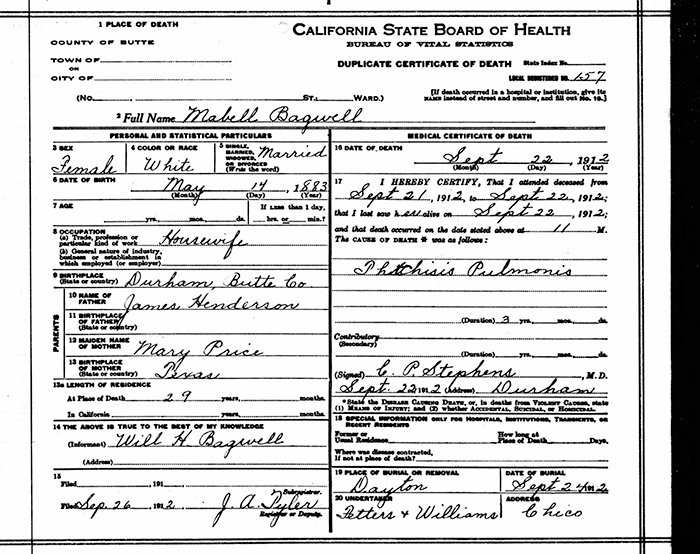 1 PLACE OF DEATH
COUNTY OF BUTTE
TOWN OF
OR
CITY OF
CALIFORNIA STATE BOARD OF HEALTH
BUREAU OF VITAL STATISTICS
DUPLICATE CERTIFICATE OF DEATH State Index No.
LOCAL REGISTERED NO. 157
(No. ST.; WARD.)
[If death occurred in a hospital or institution, give its
NAME instead of street and number, and fill out No. 18.]
2 Full Name Mabell Bagwell
PERSONAL AND STATISTICAL PARTICULARS
3 SEX
Female
4 COLOR OR RACE
White
5 SINGLE,
MARRIED,
WIDOWED,
OR DIVORCED
(Write the word)
Married
6 DATE OF BIRTH
May 14, 1883
(Month) (Day) (Year)
7 AGE
If LESS than 1 day,
yrs. mos. ds. hrs. or min.?
8 OCCUPATION
(a) Trade, profession or
particular kind of work Housewife
(b) General nature of industry,
business or establishment in
which employed (or employer)
9 BIRTHPLACE
(State or country) Durham, Butte Co.
PARENTS
10 NAME OF
FATHER James Henderson
11 BIRTHPLACE
OF FATHER
(State or country)
12 MAIDEN NAME
OF MOTHER Mary Price
13 BIRTHPLACE
OF MOTHER
(State or country) Texas
13a LENGTH OF RESIDENCE
At Place of Death 29 years, months.
In California years, months.
14 THE ABOVE IS TRUE TO THE BEST OF MY KNOWLEDGE
(Informant) Will H. Bagwell
(Address)
15
Filed , 191
Subregistrar.
Filed Sep. 26, 1912 J. A. Tyler
Registrar or Deputy.
MEDICAL CERTIFICATE OF DEATH
16 DATE OF DEATH
Sept 22, 1912
(Month) (Day) (Year)
17 I HEREBY CERTIFY, That I attended deceased from
Sept 21, 1912, to Sept 22, 1912;
that I last saw her alive on Sept 22, 1912;
and that death occurred on the date stated above at 11 M.
The CAUSE OF DEATH * was as follows:
Phthisis Pulmonis
(Duration) 3 yrs. mos. ds.
Contributory
(Secondary)
(Duration) yrs. mos. ds.
(Signed) C. P. Stephens, M.D.
Sept. 22 1912 (Address) Durham
*State the DISEASE CAUSING DEATH, or, in deaths from VIOLENT CAUSES, state
(1) MEANS OF INJURY; and (2) whether ACCIDENTAL, SUICIDAL, or HOMICIDAL.
18 SPECIAL INFORMATION ONLY FOR HOSPITALS, INSTITUTIONS, TRANSIENTS, OR
RECENT RESIDENTS
Former or
Usual Residence
How long at
Place of Death Days.
Where was disease contracted,
If not at place of death?
19 PLACE OF BURIAL OR REMOVAL
Dayton
DATE OF BURIAL
Sept 24 1912
20 UNDERTAKER
Fetters & Williams
ADDRESS
Chico